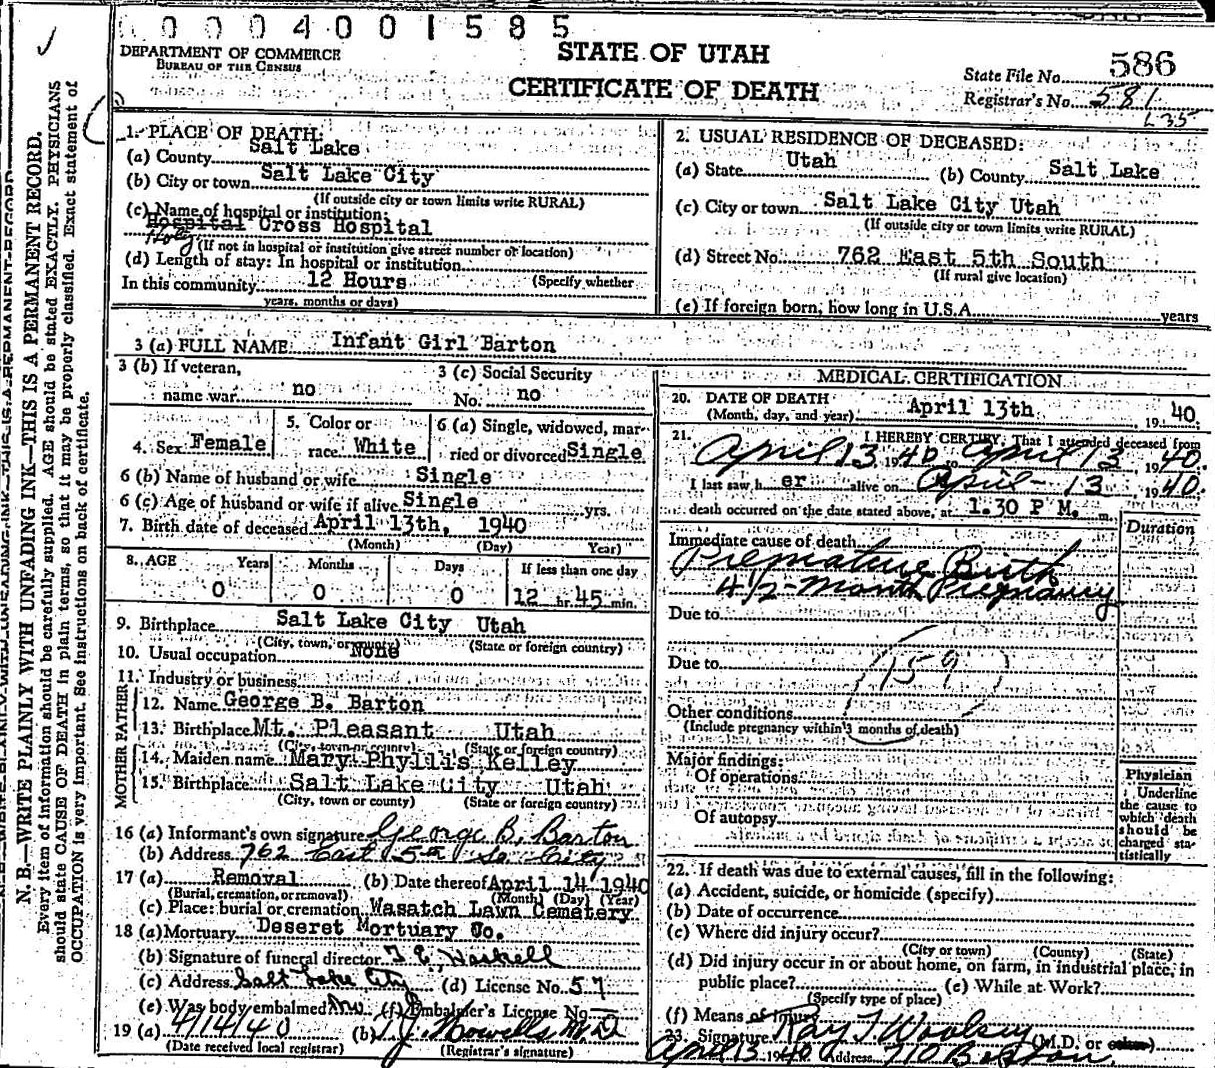 0 0 0 4 0 0 1 5 8 5
DEPARTMENT OF COMMERCE
BUREAU OF THE CENSUS
STATE OF UTAH
CERTIFICATE OF DEATH
State File No. 586
Registrar's No. 581
L35
N. B.—WRITE PLAINLY WITH UNFADING INK—THIS IS A PERMANENT RECORD.
Every item of information should be carefully supplied. AGE should be stated EXACTLY. PHYSICIANS
should state CAUSE OF DEATH in plain terms, so that it may be properly classified. Exact statement of
OCCUPATION is very important. See instructions on back of certificate.
1. PLACE OF DEATH:
(a) County Salt Lake
(b) City or town Salt Lake City
(If outside city or town limits write RURAL)
(c) Name of hospital or institution:
Hospital Cross Hospital
Holy (If not in hospital or institution give street number or location)
(d) Length of stay: In hospital or institution
In this community 12 Hours (Specify whether
years, months or days)
2. USUAL RESIDENCE OF DECEASED:
(a) State Utah (b) County Salt Lake
(c) City or town Salt Lake City Utah
(If outside city or town limits write RURAL)
(d) Street No. 762 East 5th South
(If rural give location)
(e) If foreign born, how long in U.S.A. years
3 (a) FULL NAME Infant Girl Barton
3 (b) If veteran, name war no
3 (c) Social Security No. no
4. Sex Female
5. Color or race White
6 (a) Single, widowed, married or divorced Single
6 (b) Name of husband or wife Single
6 (c) Age of husband or wife if alive Single yrs.
7. Birth date of deceased April 13th, 1940
(Month) (Day) Year)
8. AGE Years Months Days If less than one day
0 0 0 12 hr. 45 min.
9. Birthplace Salt Lake City Utah
(City, town, or county) (State or foreign country)
10. Usual occupation None
11. Industry or business
FATHER
12. Name George B. Barton
13. Birthplace Mt. Pleasant Utah
(City, town or county) (State or foreign country)
MOTHER
14. Maiden name Mary Phyllis Kelley
15. Birthplace Salt Lake City Utah
(City, town or county) (State or foreign country)
16 (a) Informant's own signature George B. Barton
(b) Address 762 East 5th So City
17 (a) Removal (b) Date thereof April 14 1940
(Burial, cremation, or removal) (Month) (Day) (Year)
(c) Place: burial or cremation Wasatch Lawn Cemetery
18 (a) Mortuary Deseret Mortuary Co.
(b) Signature of funeral director
(c) Address Salt Lake City (d) License No. 57
(e) Was body embalmed No (f) Embalmer's License No.
19 (a) 4/14/40 (b)
(Date received local registrar) (Registrar's signature)
MEDICAL CERTIFICATION
20. DATE OF DEATH
(Month, day, and year) April 13th 19 40
21. I HEREBY CERTIFY, That I attended deceased from
April 13, 19 40 to April 13 19 40
I last saw h er alive on April - 13 19 40
death occurred on the date stated above, at 1.30 P M. m.
Duration
Immediate cause of death
Premature Birth
4 1/2 - month Pregnancy
Due to
Due to
159
Other conditions
(Include pregnancy within 3 months of death)
Major findings:
Of operations
Of autopsy
Physician
Underline
the cause to
which death
should be
charged sta-
tistically
22. If death was due to external causes, fill in the following:
(a) Accident, suicide, or homicide (specify)
(b) Date of occurrence
(c) Where did injury occur?
(City or town) (County) (State)
(d) Did injury occur in or about home, on farm, in industrial place, in
public place? (e) While at Work?
(Specify type of place)
(f) Means of Injury
23. Signature Ray T Woolsey (M.D. or other)
April 13 1940 Address 710 Boston